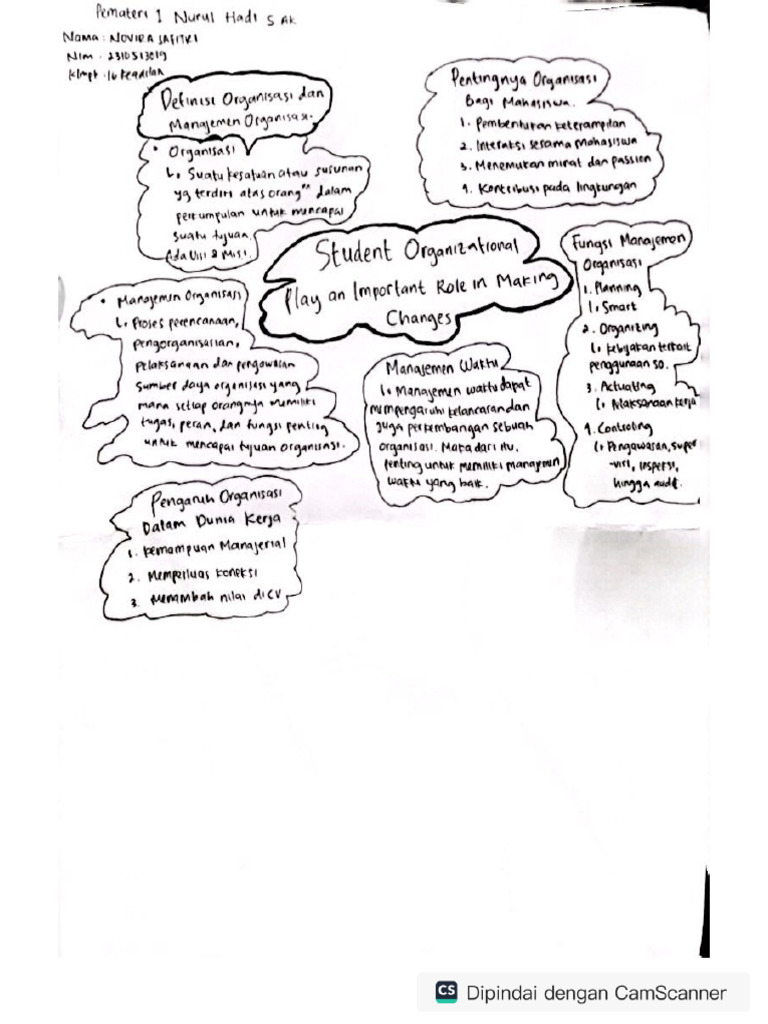 Pemateri 1 Nurul Hadi S Ak
Nama : NOVIRA SAFITRI
Nim . 2310513019
Klmpk . 16 Keadilan
Definisi Organisasi dan
Manajemen Organisasi.
• Organisasi
↳ Suatu kesatuan atau susunan
yg terdiri atas orang" dalam
perkumpulan untuk mencapai
suatu tujuan.
Ada Visi & Misi.
Pentingnya Organisasi
Bagi Mahasiswa.
1. Pembentukan keterampilan
2. Interaksi sesama Mahasiswa
3. Menemukan minat dan passion
4. Kontribusi pada lingkungan
Student Organizational
Play an Important Role in Making
Changes
Fungsi Manajemen
Organisasi
1. Planning
↳ Smart
2. Organizing
↳ Kebijakan terkait
penggunaan SO.
3. Actuating
↳ Pelaksanaan kerja
4. Controling
↳ Pengawasan, super
-visi, inspeksi,
hingga audit.
• Manajemen Organisasi
↳ Proses perencanaan,
pengorganisasian,
pelaksanaan dan pengawasan
sumber daya organisasi yang
mana setiap orangnya memiliki
tugas, peran, dan fungsi penting
untuk mencapai tujuan organisasi.
Manajemen Waktu
↳ Manajemen waktu dapat
mempengaruhi kelancaran dan
juga perkembangan sebuah
organisasi. Maka dari itu,
penting untuk memiliki manajmen
waktu yang baik.
Pengaruh Organisasi
Dalam Dunia Kerja
1. Kemampuan Manajerial
2. Memperluas koneksi
3. Menambah nilai di CV
CS Dipindai dengan CamScanner